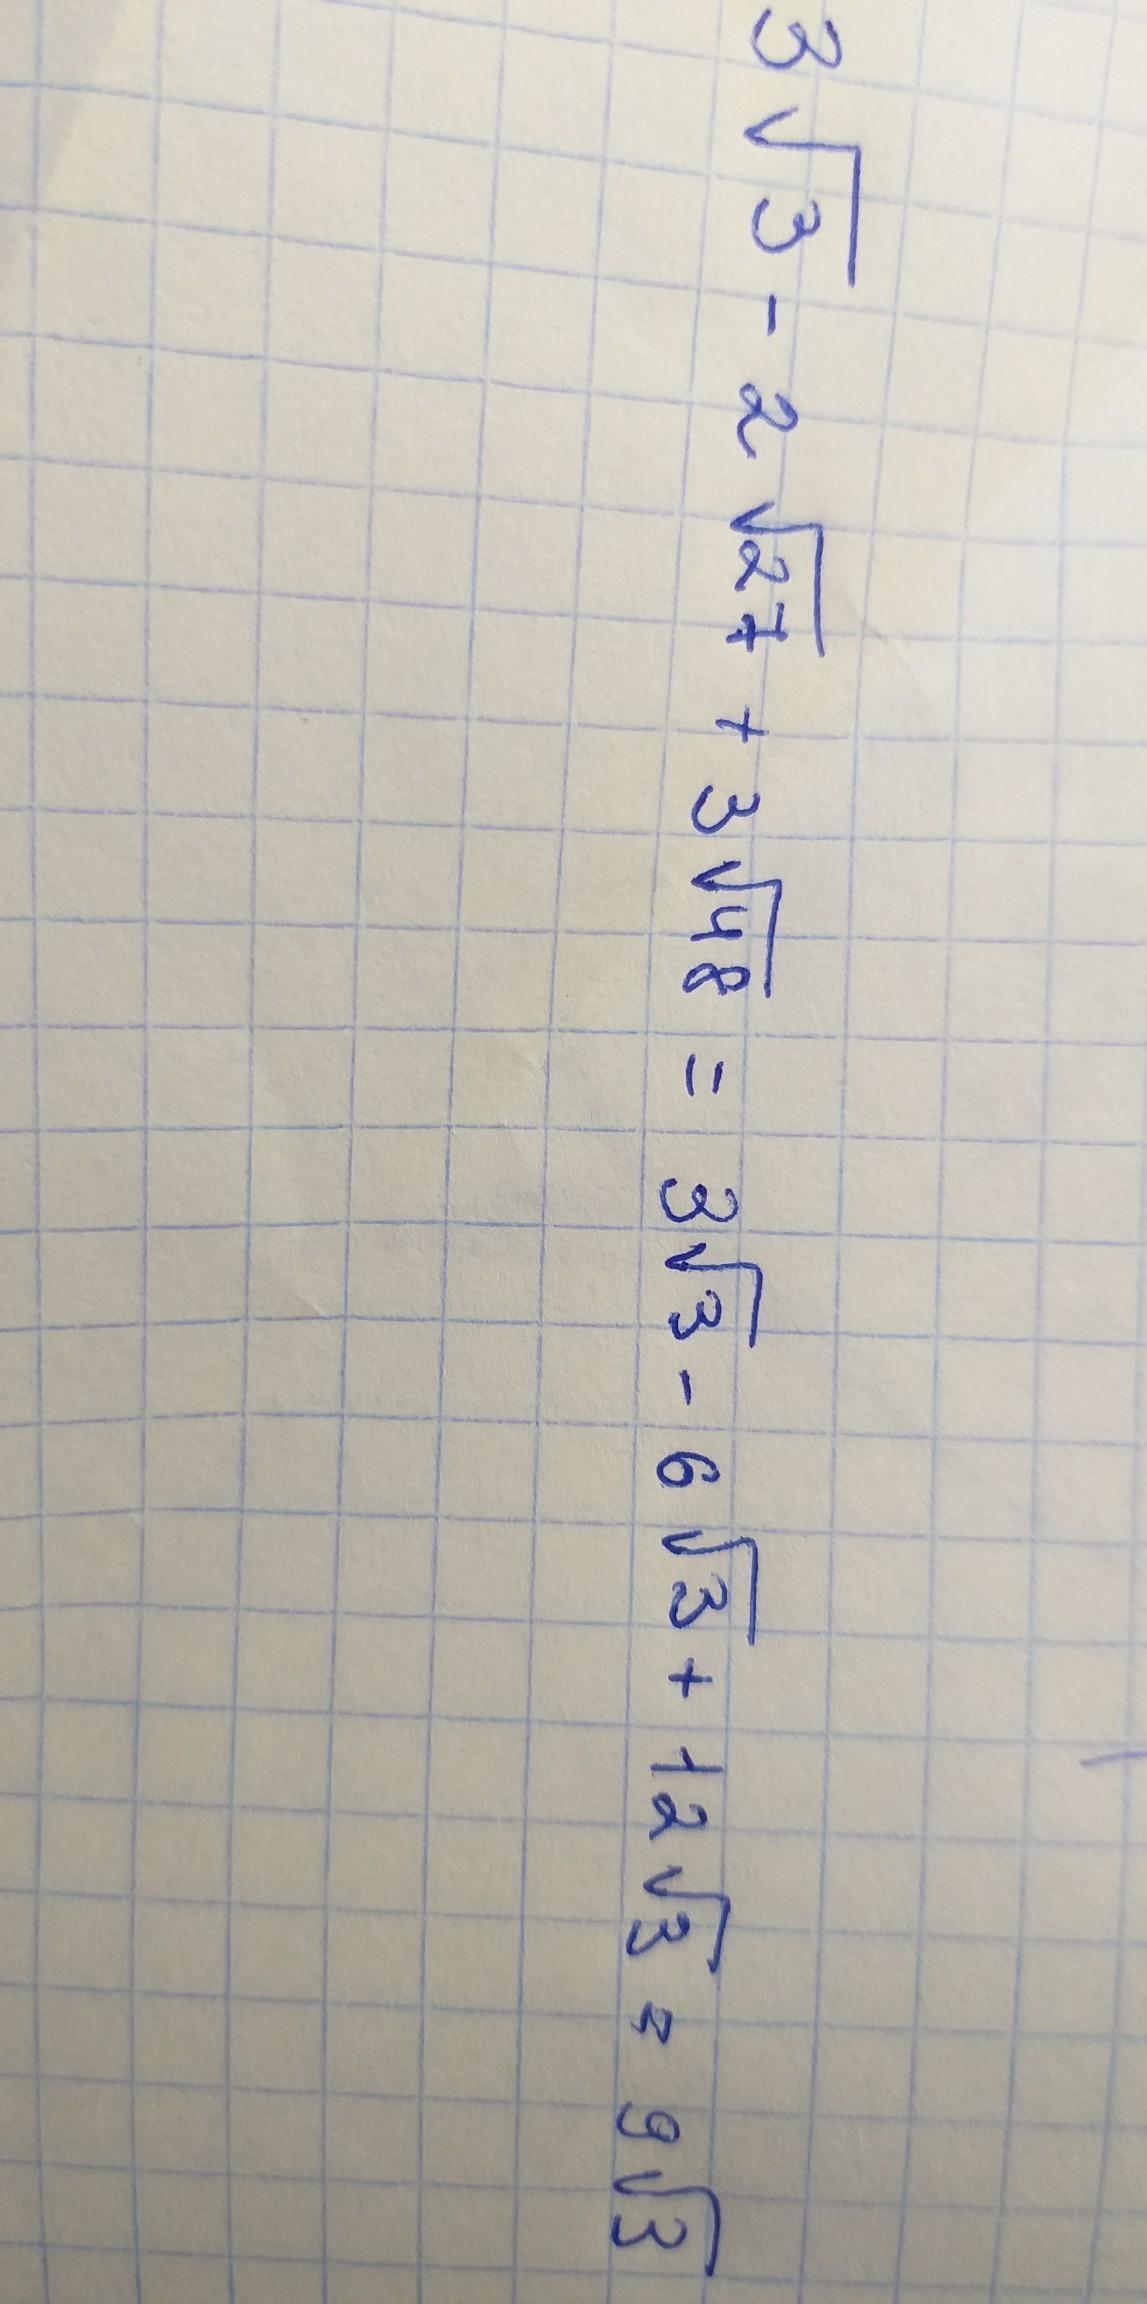 3√3 - 2√27 + 3√48 = 3√3 - 6√3 + 12√3 = 9√3